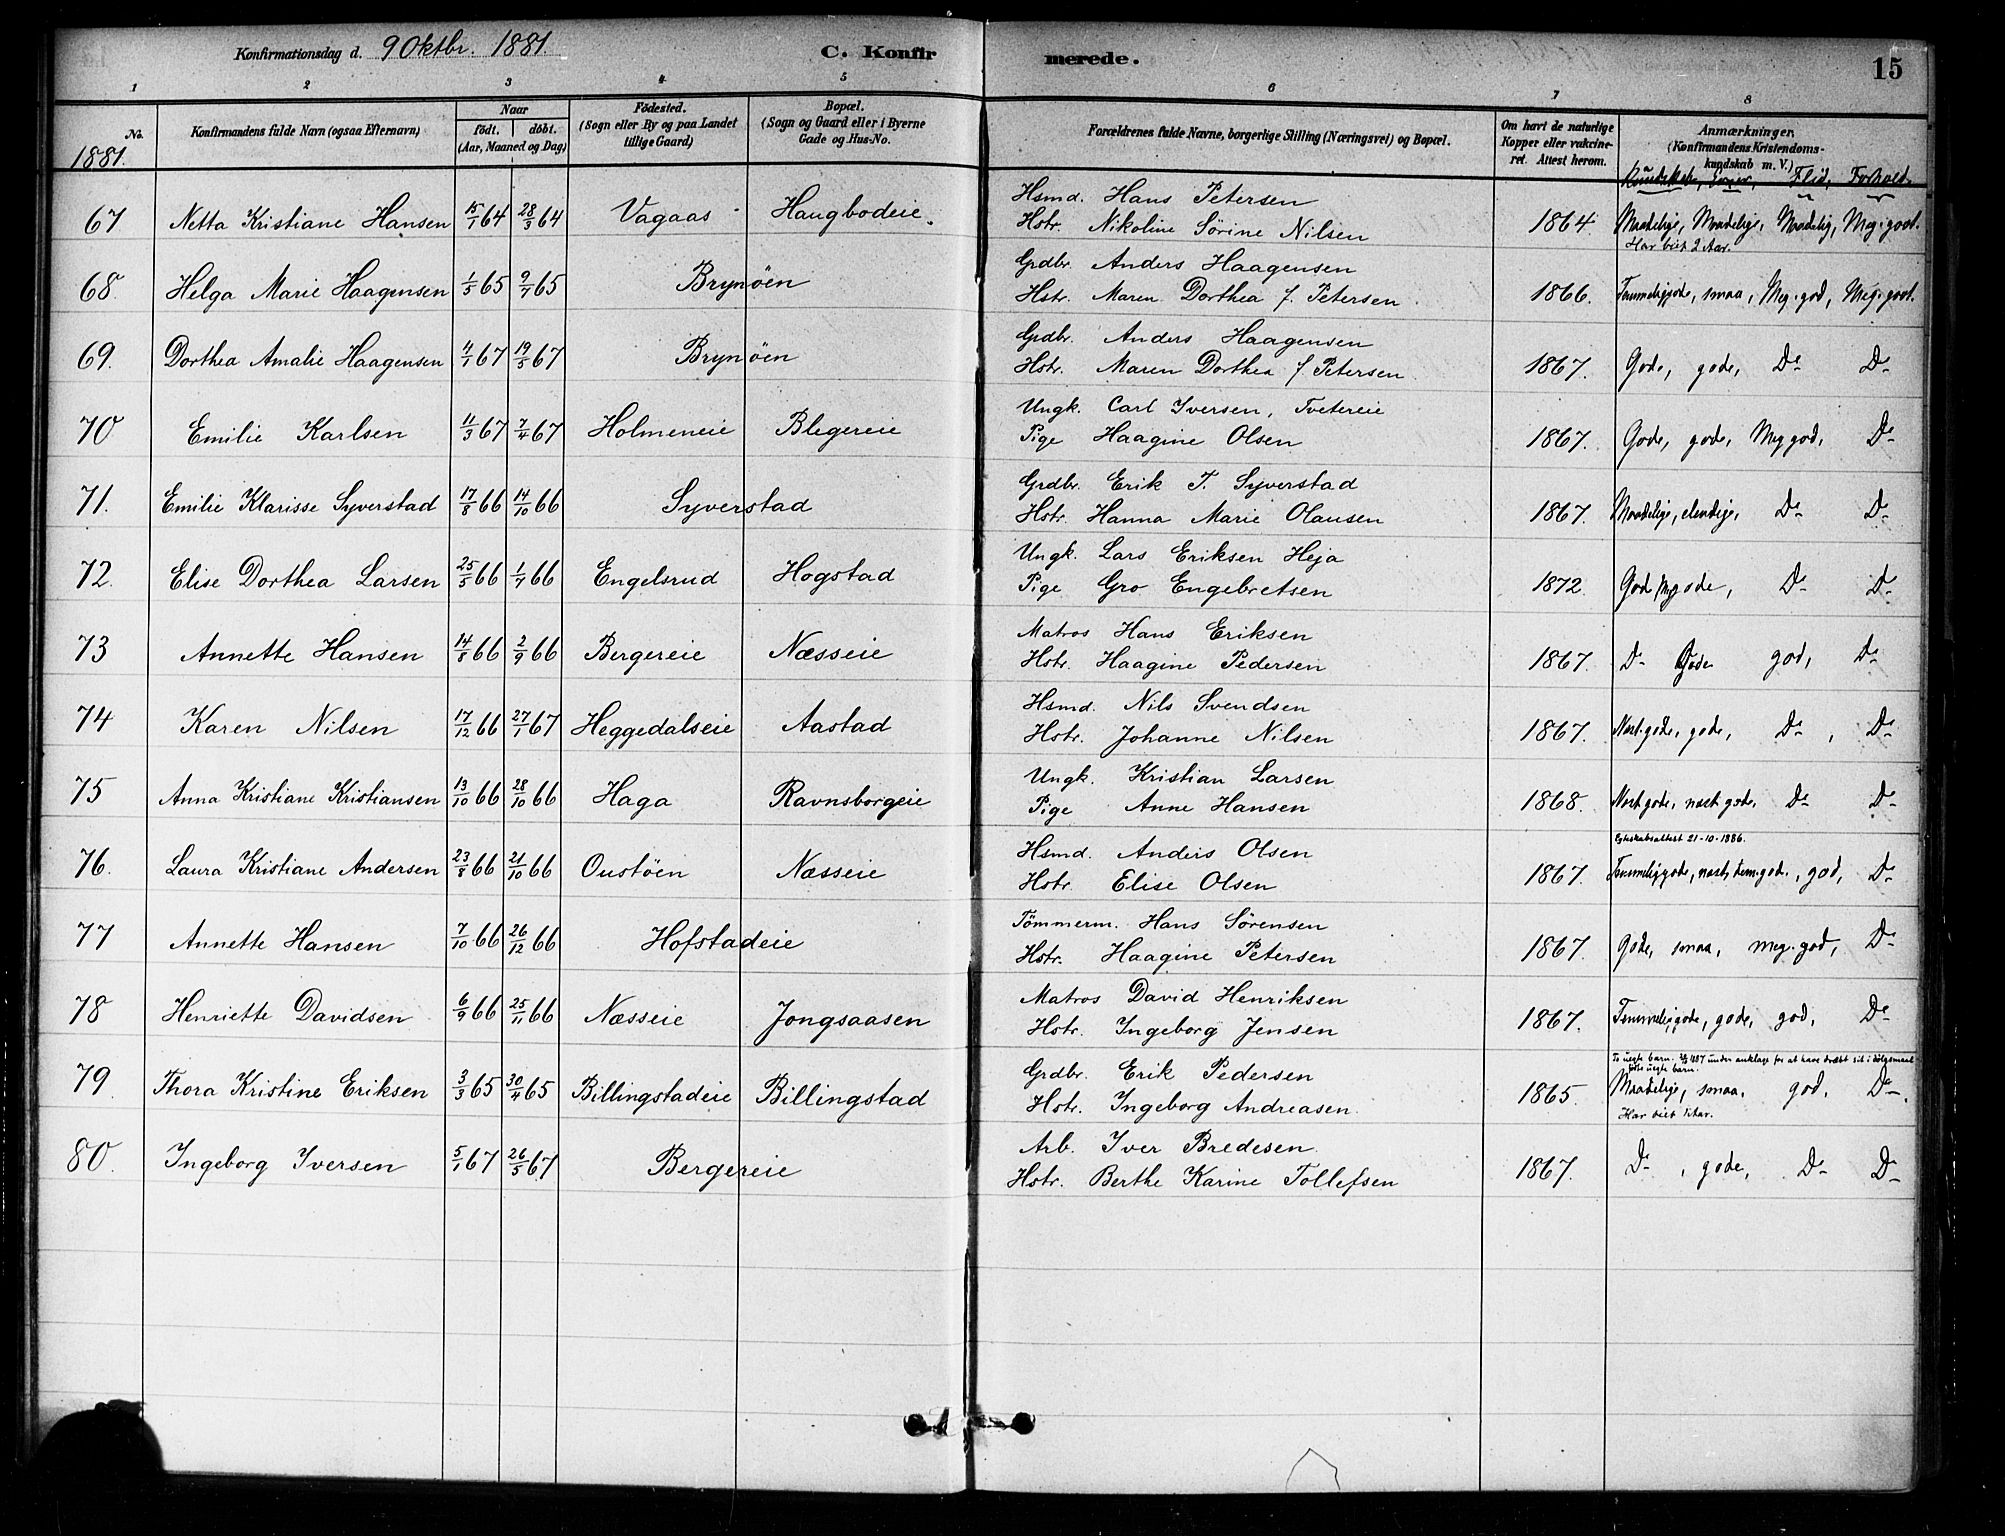 Konfirmationsdag d. 9 Oktbr. 1881.
C. Konfirmerede.
15
1 2 3 4 5 6 7 8
No.
1881.
Konfirmandens fulde Navn (ogsaa Efternavn)
Naar
födt. döbt.
(Aar, Maaned og Dag)
Födested.
(Sogn eller By og paa Landet
tillige Gaard)
Bopæl.
(Sogn og Gaard eller i Byerne
Gade og Hus-No.
Forældrenes fulde Navne, borgerlige Stilling (Næringsvei) og Bopæl.
Om havt de naturlige
Kopper eller vakcine-
ret. Attest herom.
Anmærkninger.
(Konfirmandens Kristendoms-
kundskab m. V.)
Kundskab, Evner, Flid, Forhold.
67 Netta Kristiane Hansen 15/1 64 28/3 64 Vagaas Haugbodeie. Hsmd. Hans Petersen 1864. Maadelige, Maadelige, Maadelig, Meg. godt.
Hstr. Nikoline Sörine Nilsen Har vist 2 Aar.
68. Helga Marie Haagensen 1/5 65 9/7 65 Brynöen Grdbr. Anders Haagensen 1866. Temmeliggode, smaa, Meg. god, Meg. godt.
Hstr. Maren Dorthea f. Petersen
69. Dorthea Amalie Haagensen 4/1 67 19/5 67 Brynöen Grdbr. Anders Haagensen 1867. Gode, gode, Do Do
Hstr. Maren Dorthea f. Petersen
70 Emilie Karlsen 11/3 67 7/4 67 Holmeneie Blegereie Ungk. Carl Iversen, Tvetereie 1867. Gode, gode, Meg god, Do
Pige Haagine Olsen
71. Emilie Klarisse Syverstad 17/8 66 14/10 66 Syverstad Grdbr. Erik T. Syverstad 1867. Maadelige, elendige, Do Do
Hstr. Hanna Marie Olausen
72. Elise Dorthea Larsen 25/5 66 1/7 66 Engelsrud Hogstad Ungk. Lars Eriksen Heja 1872. God Meg gode, Do Do
Pige Gro Engebretsen
73 Annette Hansen 14/8 66 2/9 66 Bergereie Næsseie Matros Hans Eriksen 1867. Do Gode god, Do
Hstr. Haagine Pedersen
74 Karen Nilsen 17/12 66 27/1 67 Heggedalseie Aastad Hsmd. Nils Svendsen 1867. Næst. gode, gode, Do, Do
Hstr. Johanne Nilsen
75 Anna Kristiane Kristiansen 13/10 66 28/10 66 Haga Ravnsborgeie Ungk. Kristian Larsen 1868. Næst gode, næst gode, Do Do
Pige Anne Hansen
Egteskabsattest 21-10-1886.
76. Laura Kristiane Andersen 23/8 66 21/10 66 Oustöen Næsseie Hsmd. Anders Olsen 1867. Temmeliggode, næst, tem. gode., god, Do
Hstr. Elise Olsen
77 Annette Hansen 7/10 66 26/12 66 Hofstadeie Tömmerm. Hans Sörensen 1867. Gode, smaa, meg. god, Do
Hstr. Haagine Petersen
78 Henriette Davidsen 6/9 66 25/11 66 Næsseie Jongsaasen Matros David Henriksen 1867. Temmeliggode, gode, god, Do
Hstr. Ingeborg Jensen
uegte barn. under anklage for at have dræbt sit i dölgsmaal
födte uegte barn.
79. Thora Kristine Eriksen 3/3 65 30/4 65 Billingstadeie Billingstad Grdbr. Erik Pedersen 1865. Maadelige, smaa, god, Do
Hstr. Ingeborg Andreasen. Har vist 1 Aar.
80. Ingeborg Iversen 5/1 67 26/5 67 Bergereie Arb. Iver Bredesen 1867. Do, gode, Do Do
Hstr. Berthe Karine Tollefsen